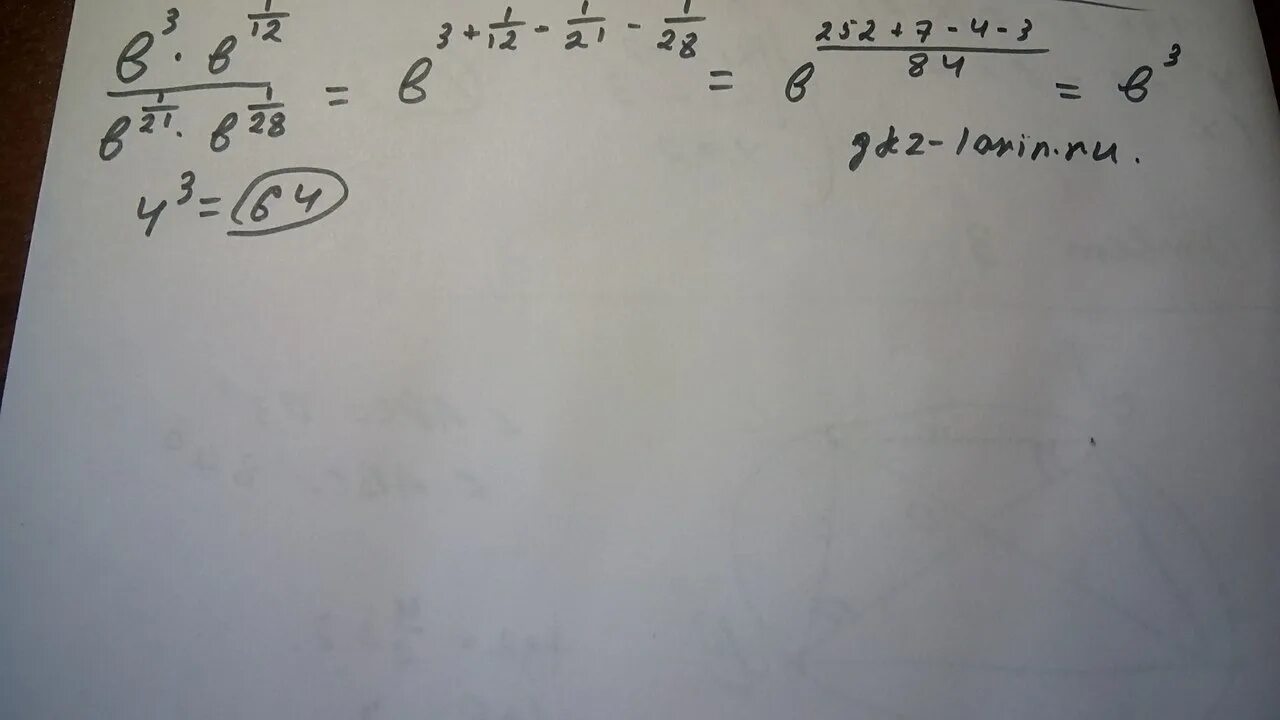 (в^3 · в^(1/12)) / (в^(1/21) · в^(1/28)) = в^(3 + 1/12 - 1/21 - 1/28) = в^((252 + 7 - 4 - 3)/84) = в^3
4^3 = 64